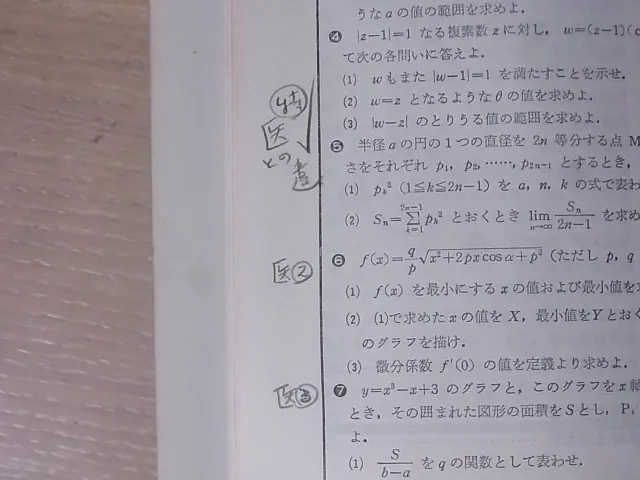 うな a の値の範囲を求めよ.
❹ |z−1|=1 なる複素数 z に対し, w=(z−1)(c
て次の各問いに答えよ.
(1) w もまた |w−1|=1 を満たすことを示せ.
(2) w=z となるような θ の値を求めよ.
(3) |w−z| のとりうる値の範囲を求めよ.
❺ 半径 a の円の 1 つの直径を 2n 等分する点 M
さをそれぞれ p₁, p₂, ……, p₂ₙ₋₁ とするとき,
(1) pₖ² (1≦k≦2n−1) を a, n, k の式で表わ
(2) Sₙ=∑_{k=1}^{2n−1} pₖ² とおくとき lim_{n→∞} Sₙ/(2n−1) を求め
医② ❻ f(x)=q/p √(x²+2px cos α+p²) (ただし p, q
(1) f(x) を最小にする x の値および最小値を
(2) (1)で求めた x の値を X, 最小値を Y とおく
のグラフを描け.
(3) 微分係数 f′(0) の値を定義より求めよ.
医③ ❼ y=x³−x+3 のグラフと, このグラフを x 軸
とき, その囲まれた図形の面積を S とし, P,
よ.
(1) S/(b−a) を q の関数として表わせ.